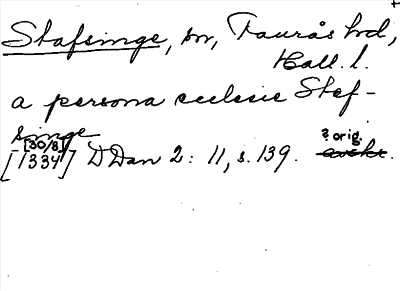 Stafsinge, sn, Faurås hd,
Hall. l.
a persona ecclesie Staf-
singe
[30/8]
[1334] DDan 2: 11, s. 139. ? orig.
avskr.